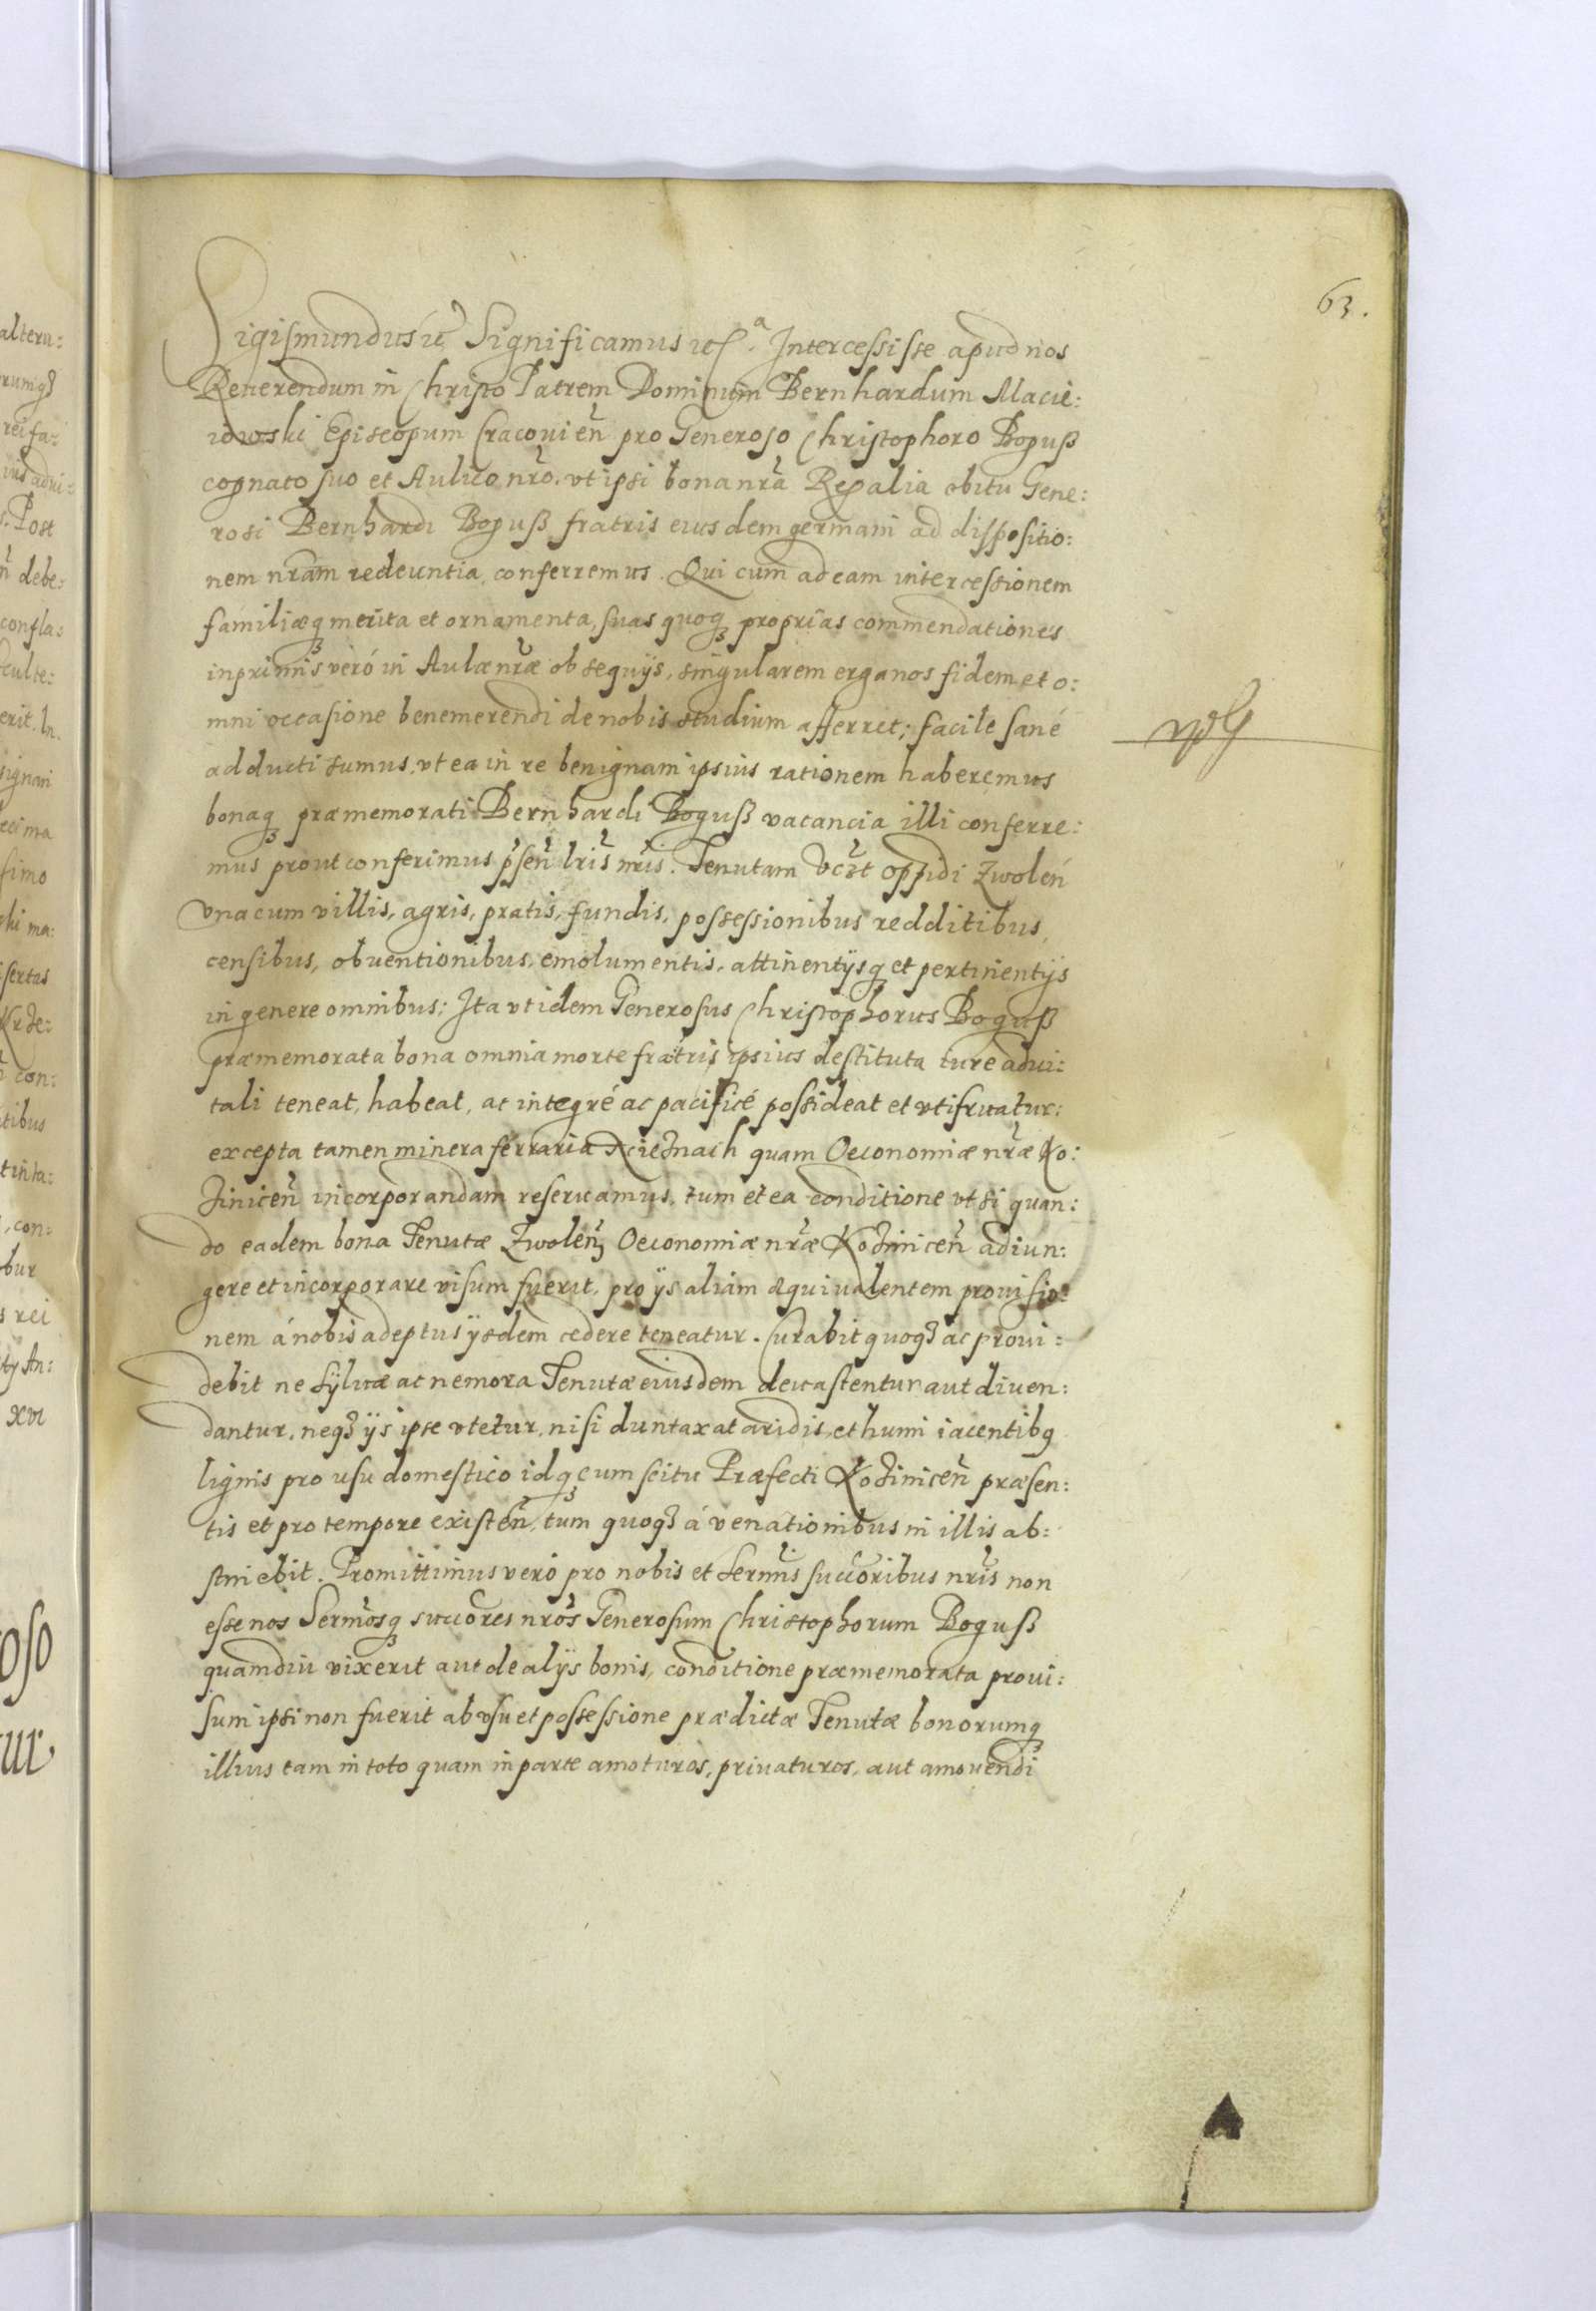 63.
Sigismundus etc Significamus etc.ª Intercessisse apud nos
Reuerendum in Christo Patrem Dominum Bernhardum Macie:
iowski Episcopum Cracouieñ pro Generoso Christophoro Boguß
cognato suo et Aulico nr̃o, vt ipsi bona nr̃a Regalia obitu Gene:
rosi Bernhardi Boguß fratris eiusdem germani ad dispositio:
nem nr̃am redeuntia conferremus. Qui cum ad eam intercessionem
familiæq merita et ornamenta, suas quoq proprias commendationes
inprimis veró in Aulæ nr̃æ obsequijs, singularem erga nos fidem et o:
mni occasione benemerendi de nobis studium afferret; facile sané
adducti sumus, vt ea in re benignam ipsius rationem haberemus
bonaq præmemorati Bernhardi Boguß vacancia illi conferre:
mus prout conferimus p̃señ lr̃is nr̃is. Tenutam vc̃zt oppidi Zwoleń
vna cum villis, agris, pratis, fundis, possessionibus redditibus,
censibus, obuentionibus, emolumentis, attinentijsq et pertinentijs
in genere omnibus; Ita vt idem Generosus Christophorus Boguß
præmemorata bona omnia morte fratris ipsius destituta iure adui:
tali teneat, habeat, ac integré ac pacificé possideat et vtifruatur:
excepta tamen minera ferraria quam Oeconomiæ nr̃æ Ko:
ziniceñ incorporandam reseruamus, tum et ea conditione vt si quan:
do eadem bona Tenutæ Zwoleñ Oeconomiæ nr̃æ Koziniceñ adiun:
gere et incorporare visum fuerit, pro ijs aliam æquiualentem prouisio:
nem á nobis adeptus ijsdem cedere teneatur. Curabit quoq ac proui:
debit ne syluæ ac nemora Tenutæ eiusdem deuastentur aut diuen:
dantur, neq ijs ipse vtetur, nisi duntaxat aridis et humi iacentibq
lignis pro usu domestico idq cum scitu Præfecti Koziniceñ præsen:
tis et pro tempore existeñ, tum quoq á venationibus in illis ab:
stinebit. Promittimus veró pro nobis et Serm̃is succ̃oribus nr̃is non
esse nos Serm̃osq succ̃ores nr̃os Generosum Christophorum Boguß
quamdiu vixerit aut de alijs bonis, conditione præmemorata proui:
sum ipsi non fuerit ab vsu et possessione prædictæ Tenutæ bonorumq
illius tam in toto quam in parte amoturos, priuaturos, aut amouendi